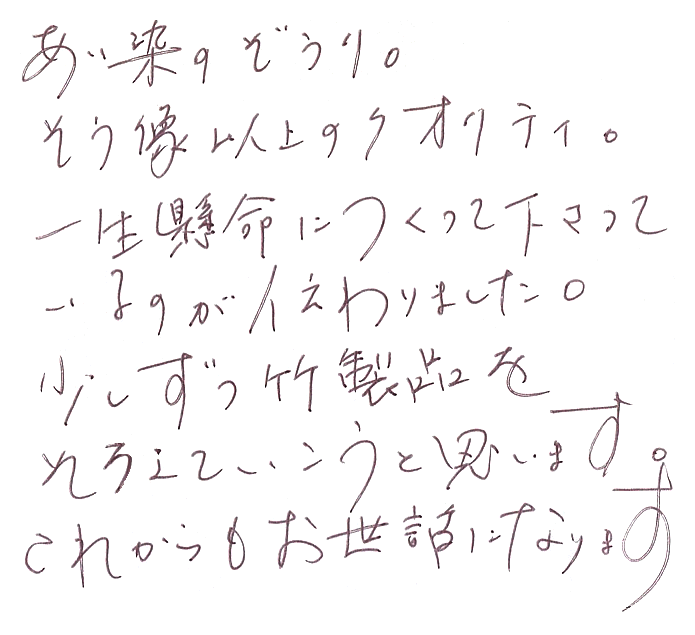 あい染のぞうり。
そう像以上のクオリティ。
一生懸命につくって下さって
いるのが伝わりました。
少しずつ竹製品を
そろえていこうと思います。
これからもお世話になります